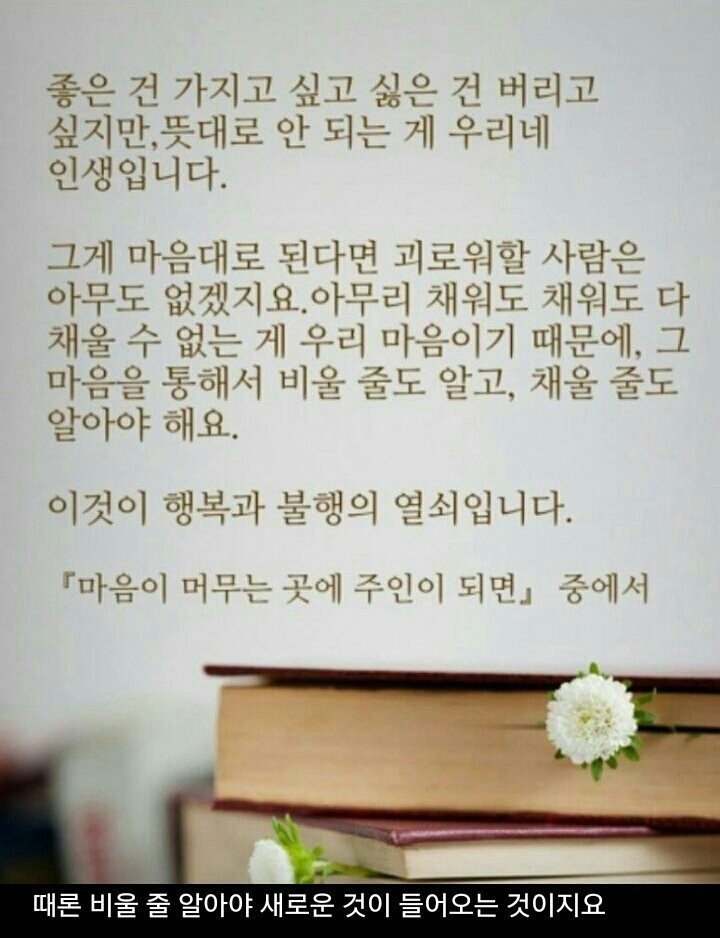 좋은 건 가지고 싶고 싫은 건 버리고
싶지만,뜻대로 안 되는 게 우리네
인생입니다.
그게 마음대로 된다면 괴로워할 사람은
아무도 없겠지요.아무리 채워도 채워도 다
채울 수 없는 게 우리 마음이기 때문에, 그
마음을 통해서 비울 줄도 알고, 채울 줄도
알아야 해요.
이것이 행복과 불행의 열쇠입니다.
『마음이 머무는 곳에 주인이 되면』 중에서
때론 비울 줄 알아야 새로운 것이 들어오는 것이지요